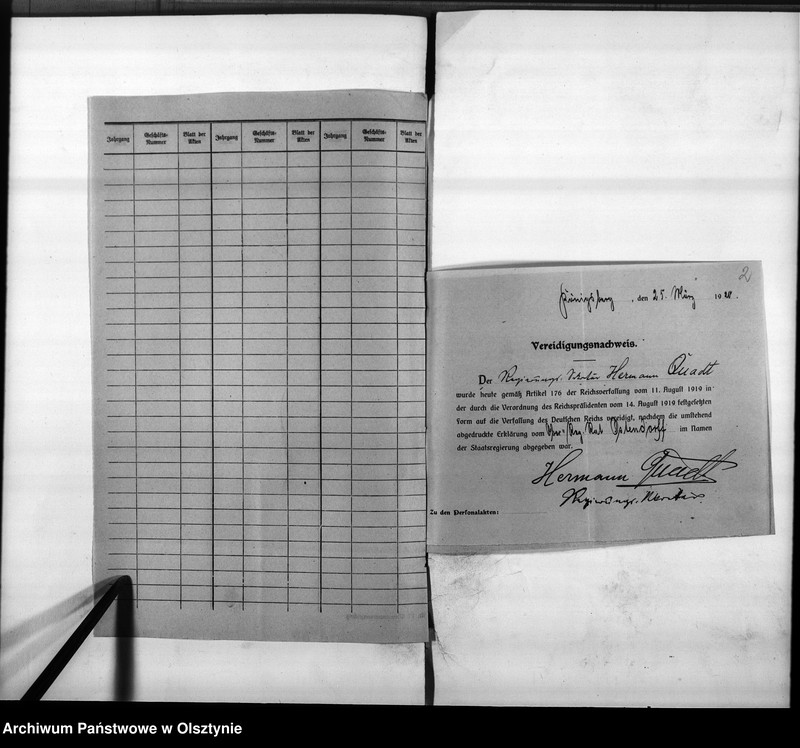 Jahrgang Geschäfts-Nummer Blatt der Akten Jahrgang Geschäfts-Nummer Blatt der Akten Jahrgang Geschäfts-Nummer Blatt der Akten
2
Königsberg, den 25. März 19
Vereidigungsnachweis.
Der Regierungs-Sekretär Hermann Quadt
wurde heute gemäß Artikel 176 der Reichsverfassung vom 11. August 1919 in
der durch die Verordnung des Reichspräsidenten vom 14. August 1919 festgesetzten
Form auf die Verfassung des Deutschen Reichs vereidigt, nachdem die umstehend
abgedruckte Erklärung vom Ober-Reg. Rat Ostendorff im Namen
der Staatsregierung abgegeben war.
Hermann Quadt
Regierungs-Sekretär.
Zu den Personalakten:
Archiwum Państwowe w Olsztynie